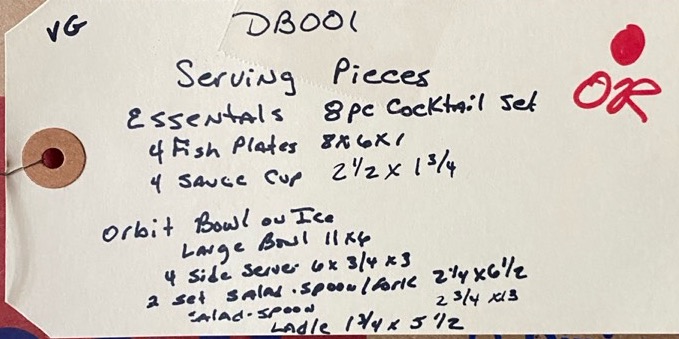 VG
DB001
OR
Serving Pieces
Essentals 8pc Cocktail Set
4 Fish Plates 8x6x1
4 Sauce Cup 2 1/2 x 1 3/4
Orbit Bowl on Ice
Large Bowl 11x6
4 Side Server 6x 3/4 x 3
2 set Salad-spoon/fork 2 1/4 x 6 1/2
Salad-spoon 2 3/4 x13
Ladle 1 3/4 x 5 1/2